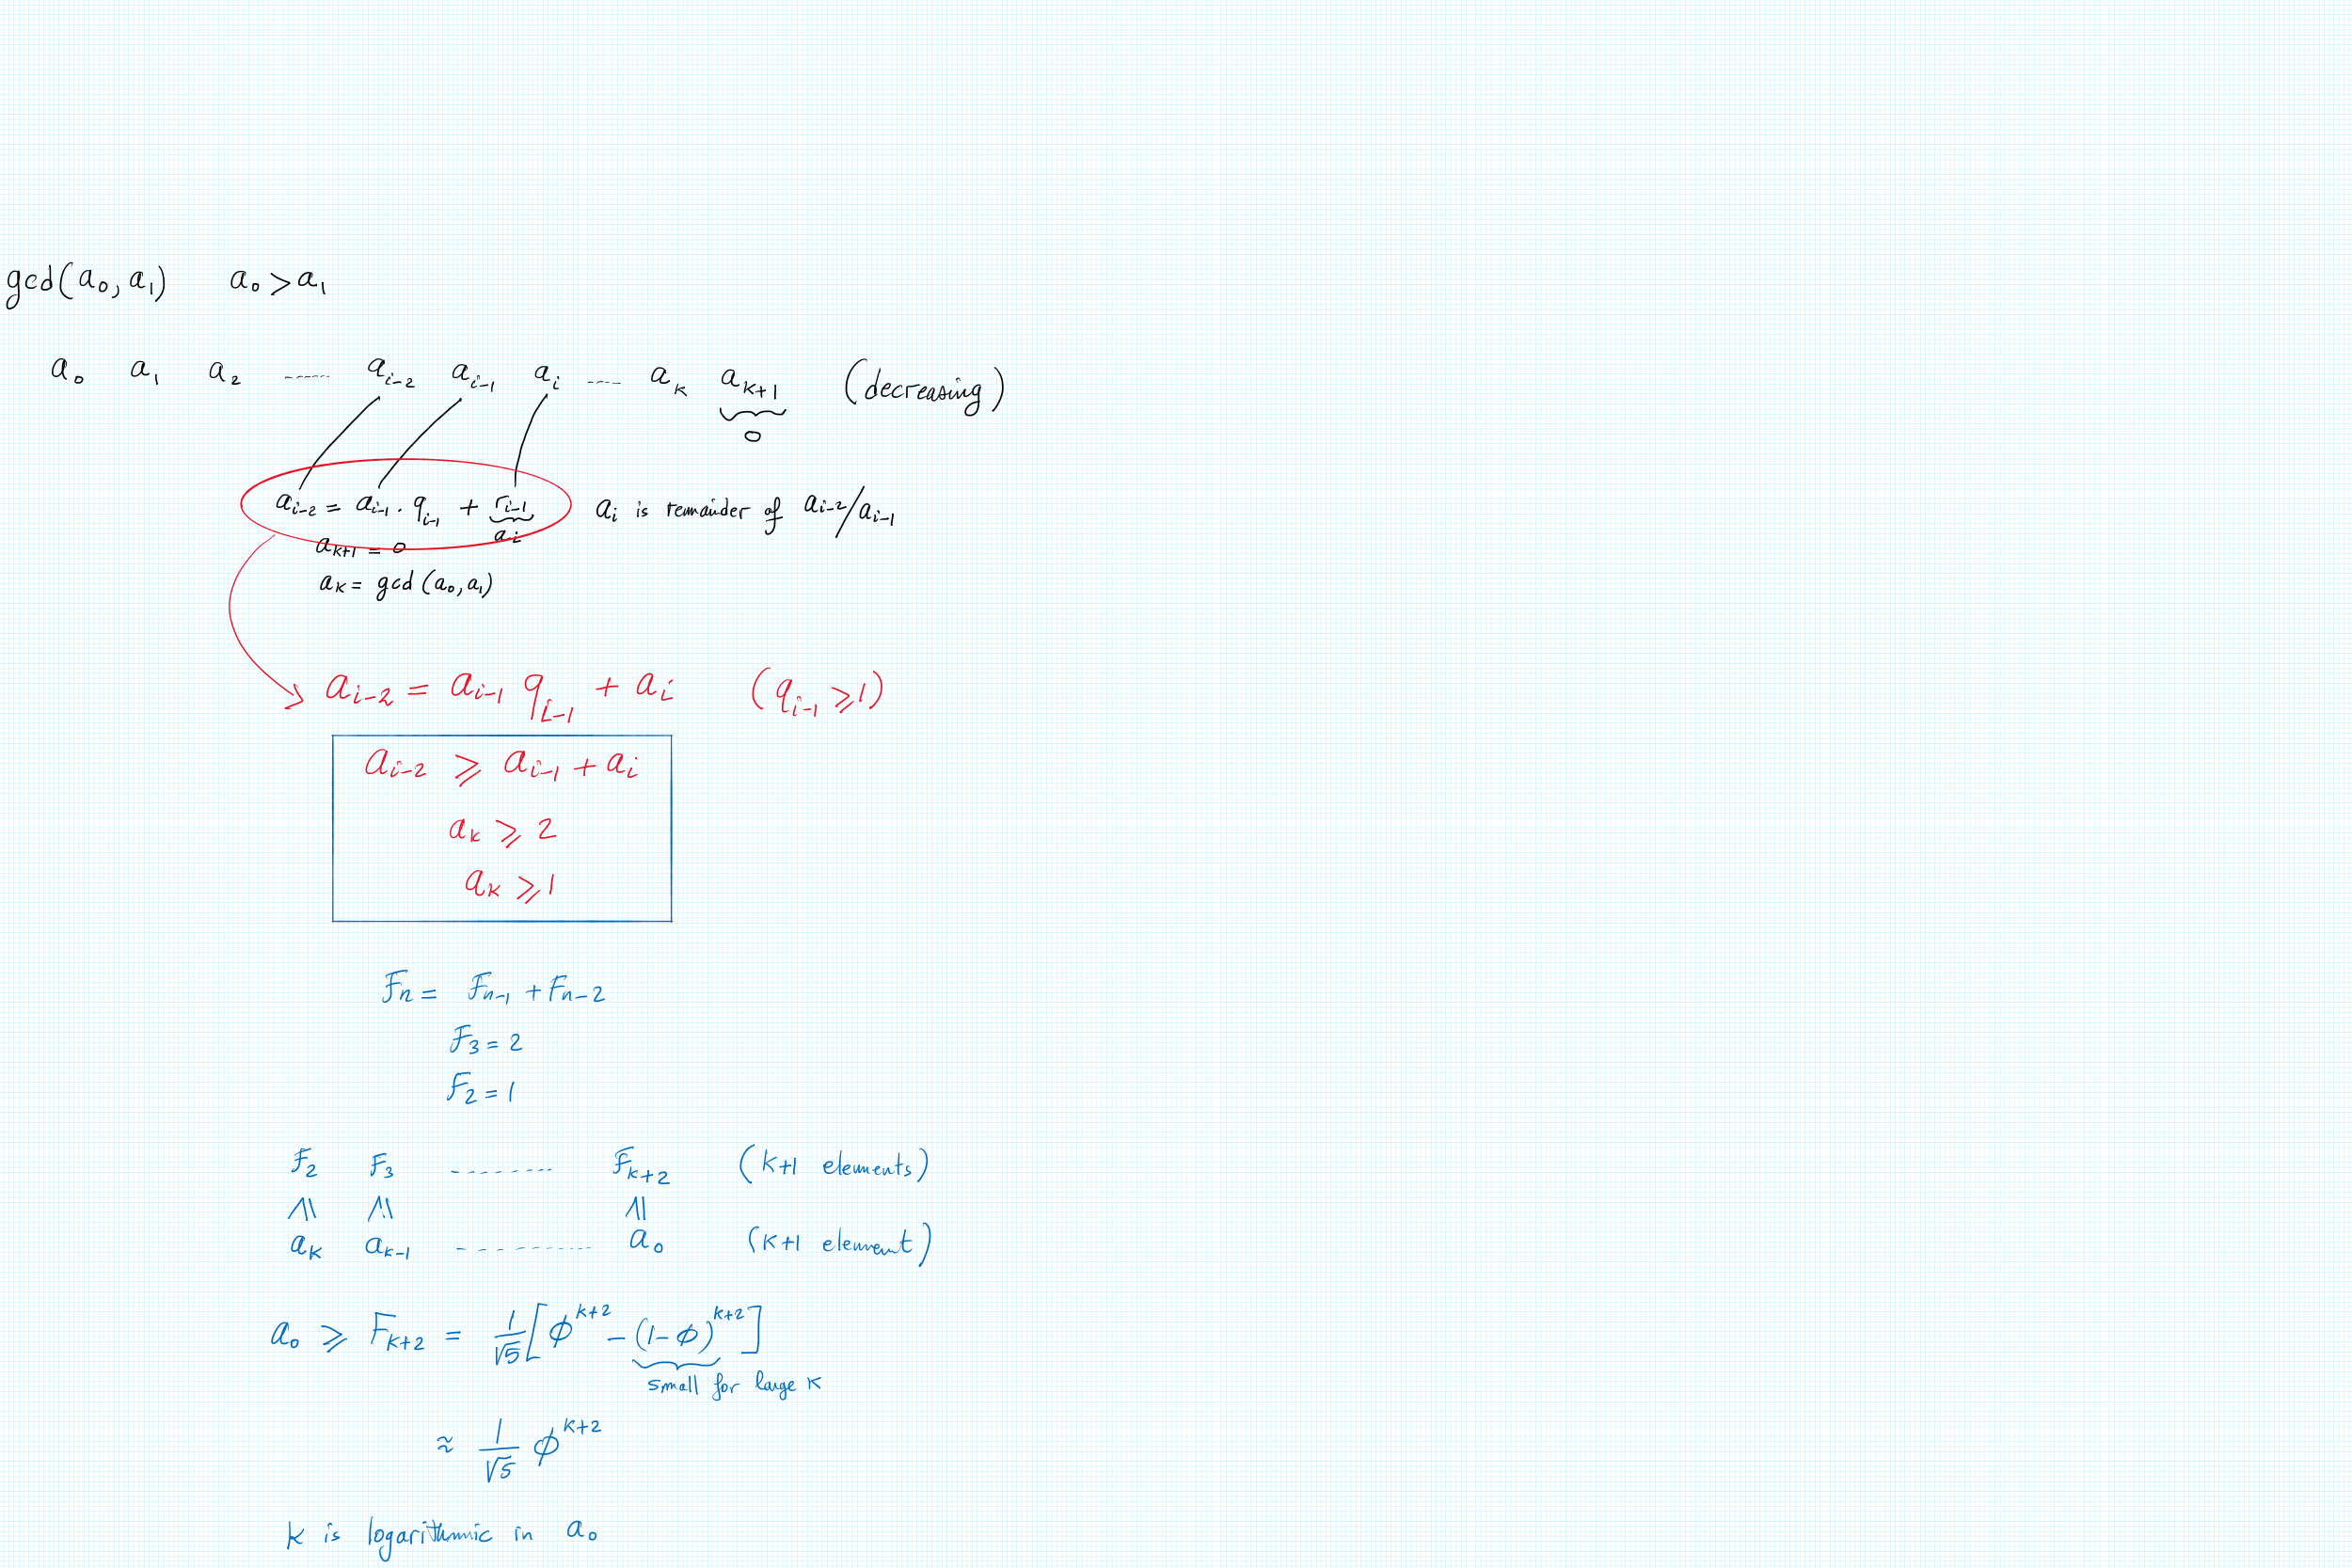 gcd(a₀, a₁) a₀ > a₁
a₀ a₁ a₂ ------ aᵢ₋₂ aᵢ₋₁ aᵢ ---- aₖ aₖ₊₁ (decreasing)
0
aᵢ₋₂ = aᵢ₋₁ · qᵢ₋₁ + rᵢ₋₁ aᵢ is remainder of aᵢ₋₂/aᵢ₋₁
aᵢ
aₖ₊₁ = 0
aₖ = gcd(a₀, a₁)
aᵢ₋₂ = aᵢ₋₁ qᵢ₋₁ + aᵢ (qᵢ₋₁ ⩾ 1)
aᵢ₋₂ ⩾ aᵢ₋₁ + aᵢ
aₖ ⩾ 2
aₖ ⩾ 1
Fₙ = Fₙ₋₁ + Fₙ₋₂
F₃ = 2
F₂ = 1
F₂ F₃ -------- Fₖ₊₂ (k+1 elements)
/\\ /\\ /\\
aₖ aₖ₋₁ ---------- a₀ (k+1 element)
a₀ ⩾ Fₖ₊₂ = 1/√5 [ϕᵏ⁺² - (1-ϕ)ᵏ⁺²]
small for large k
≈ 1/√5 ϕᵏ⁺²
k is logarithmic in a₀